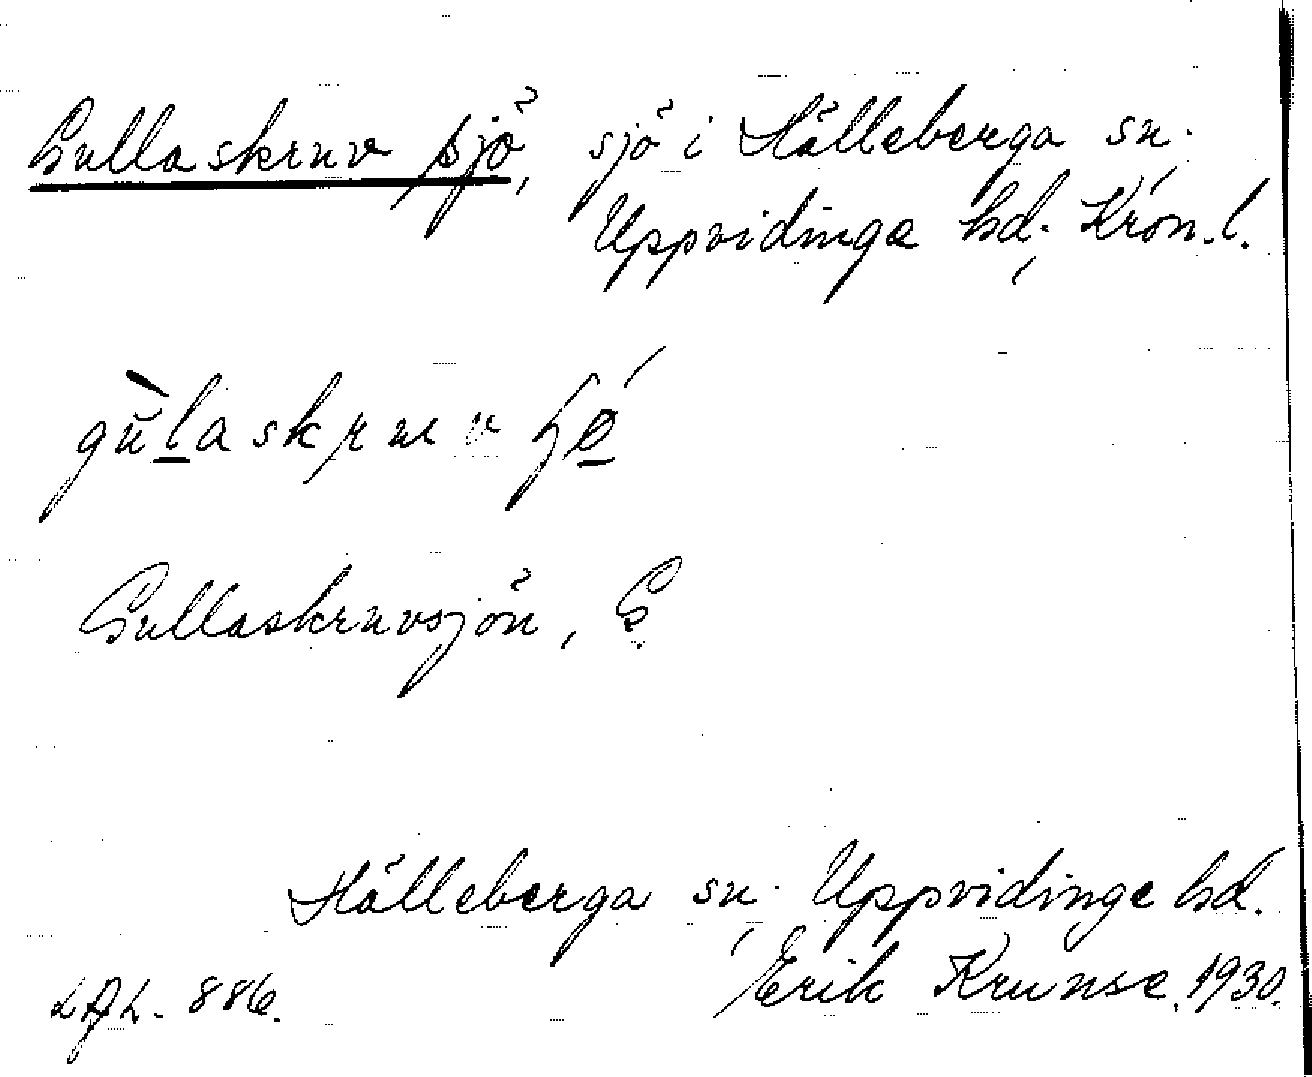 Gullaskruv sjö, sjö i Hälleberga sn.
Uppvidinge hd, Kron. l.
Gullaskruvsjön, G.
Hälleberga sn, Uppvidinge hd.
Erik Krunse, 1930.
LAL. 886.